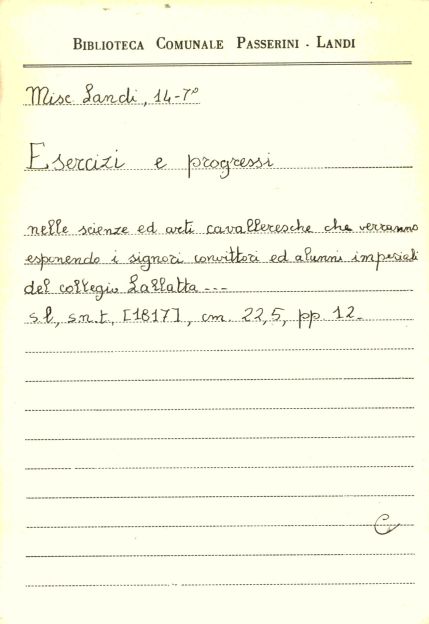 BIBLIOTECA COMUNALE PASSERINI - LANDI
Misc Landi, 14-7°
Esercizi e progressi
nelle scienze ed arti cavalleresche che verranno
esponendo i signori convittori ed alunni imperiali
del collegio Lallatta ---
s.l, s.n.t, [1817], cm. 22,5, pp 12.
C